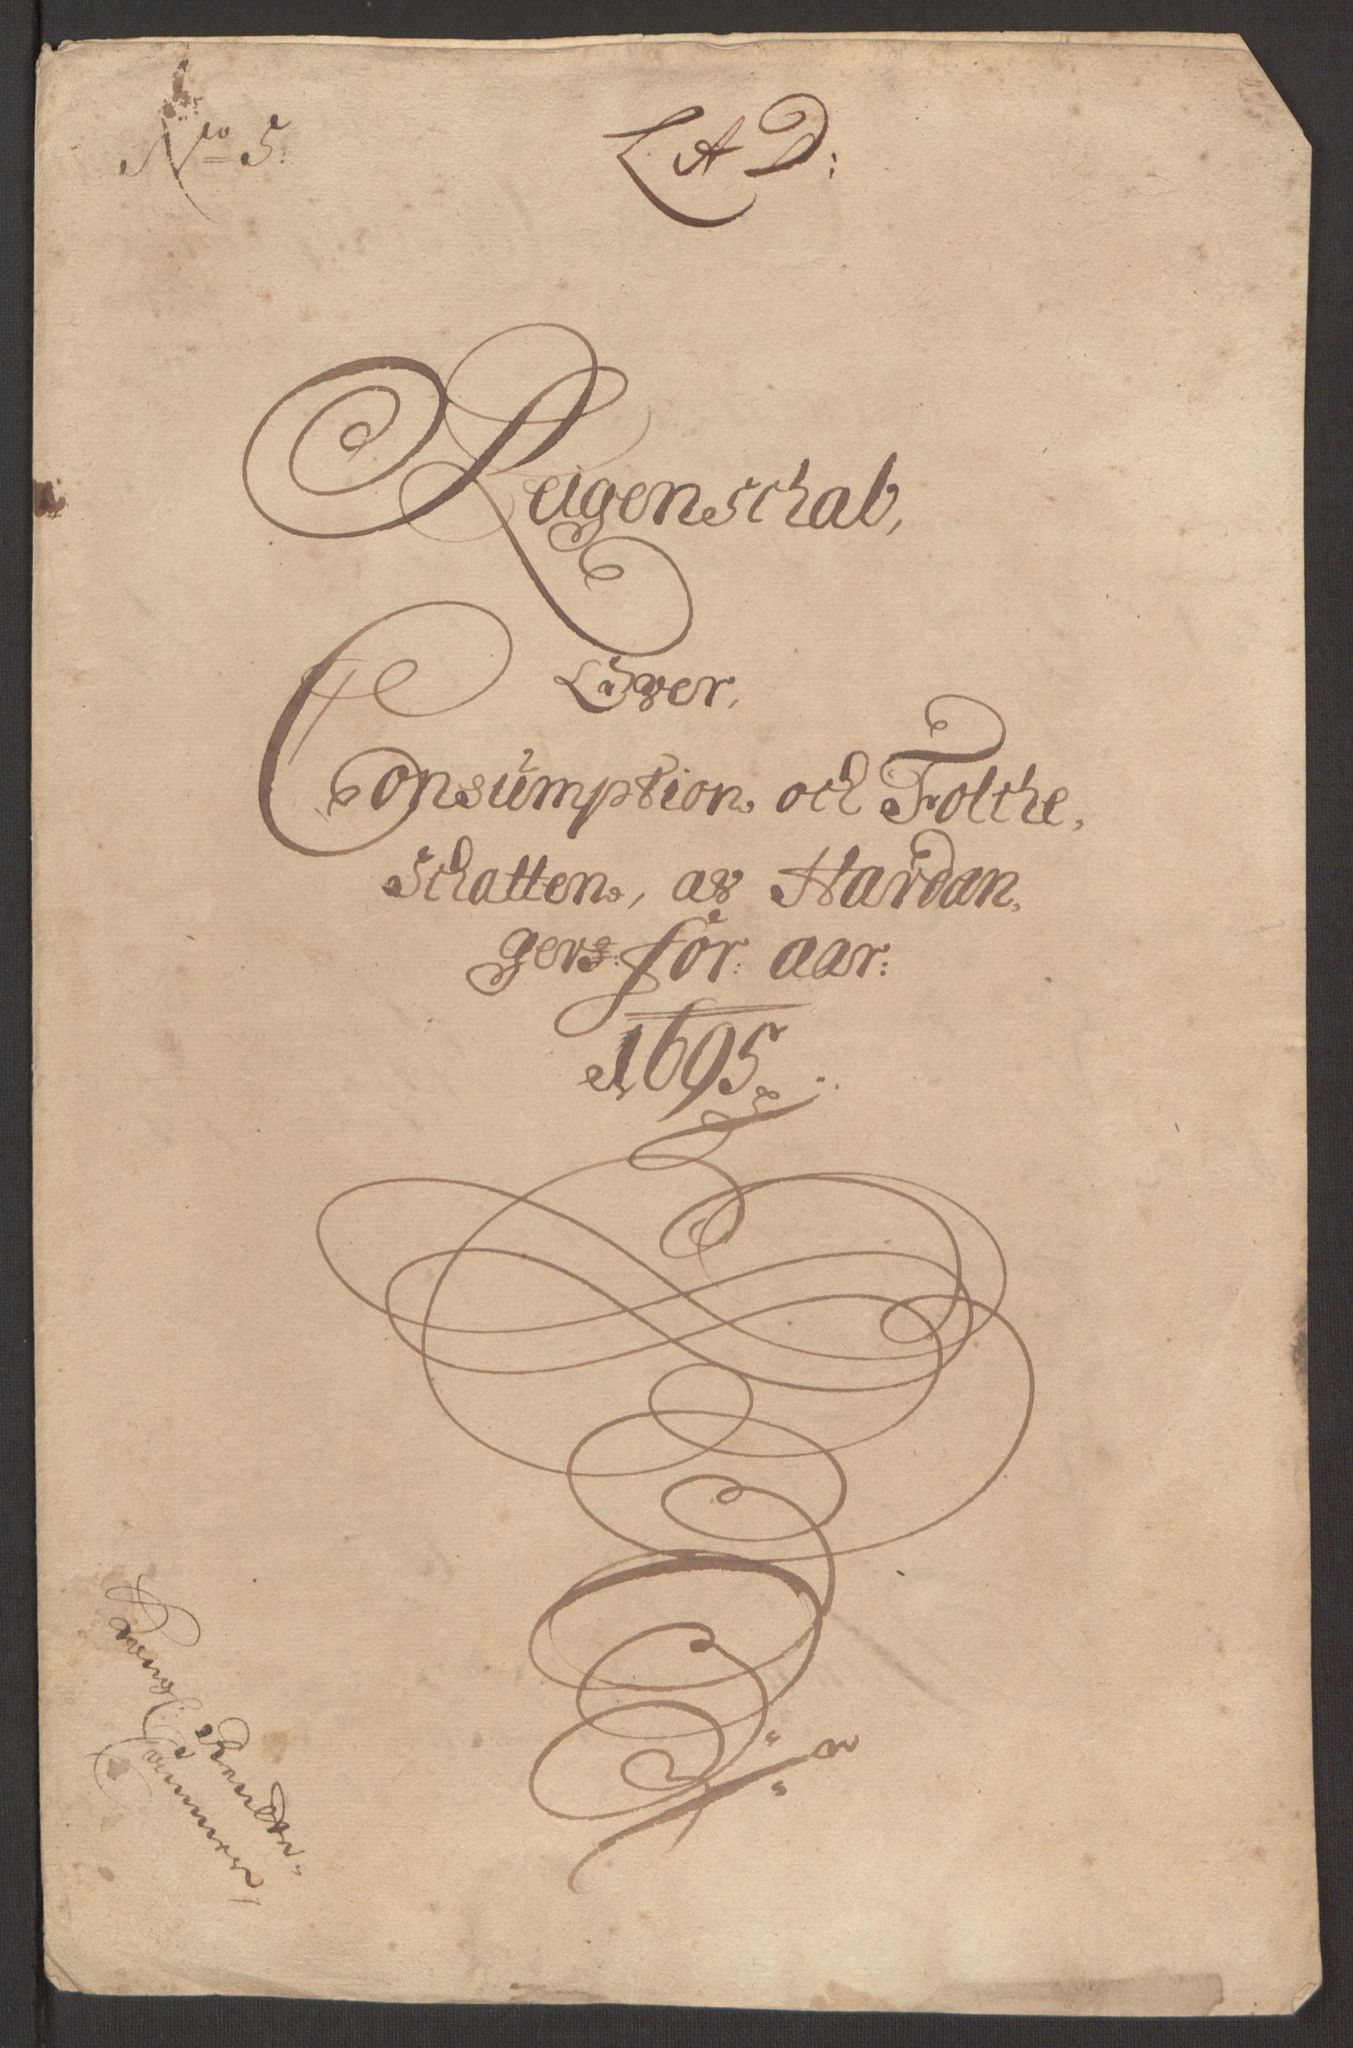 No 5.
L A D:
Reigenschab,
Över,
Consumption och Folche,
schatten, av Hardan,
gers: för: aar:
1695